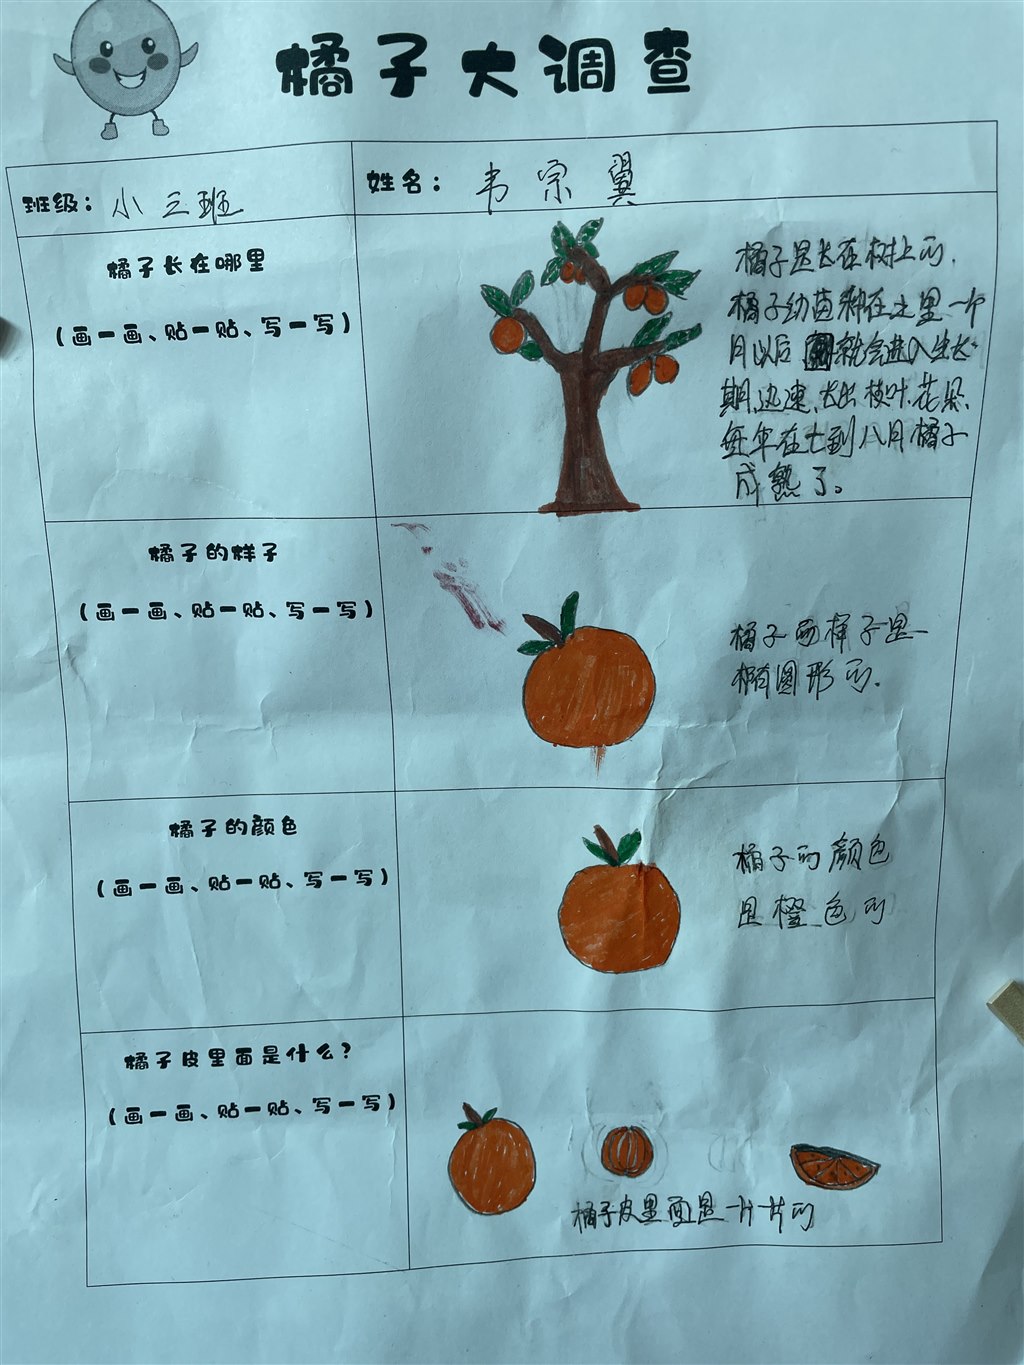 橘子大调查
班级：小三班
姓名：韦宗翼
橘子长在哪里
（画一画、贴一贴、写一写）
橘子是长在树上的.
橘子幼苗种在土里一个
月以后就会进入生长
期.迅速.长出枝叶.花朵.
每年在七到八月橘子
成熟了。
橘子的样子
（画一画、贴一贴、写一写）
橘子的样子是
椭圆形的.
橘子的颜色
（画一画、贴一贴、写一写）
橘子的颜色
是橙色的
橘子皮里面是什么？
（画一画、贴一贴、写一写）
橘子皮里面是一片一片的